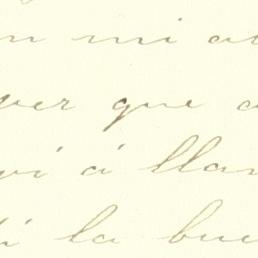 n mi
ver que a
vi á llam
i la bue